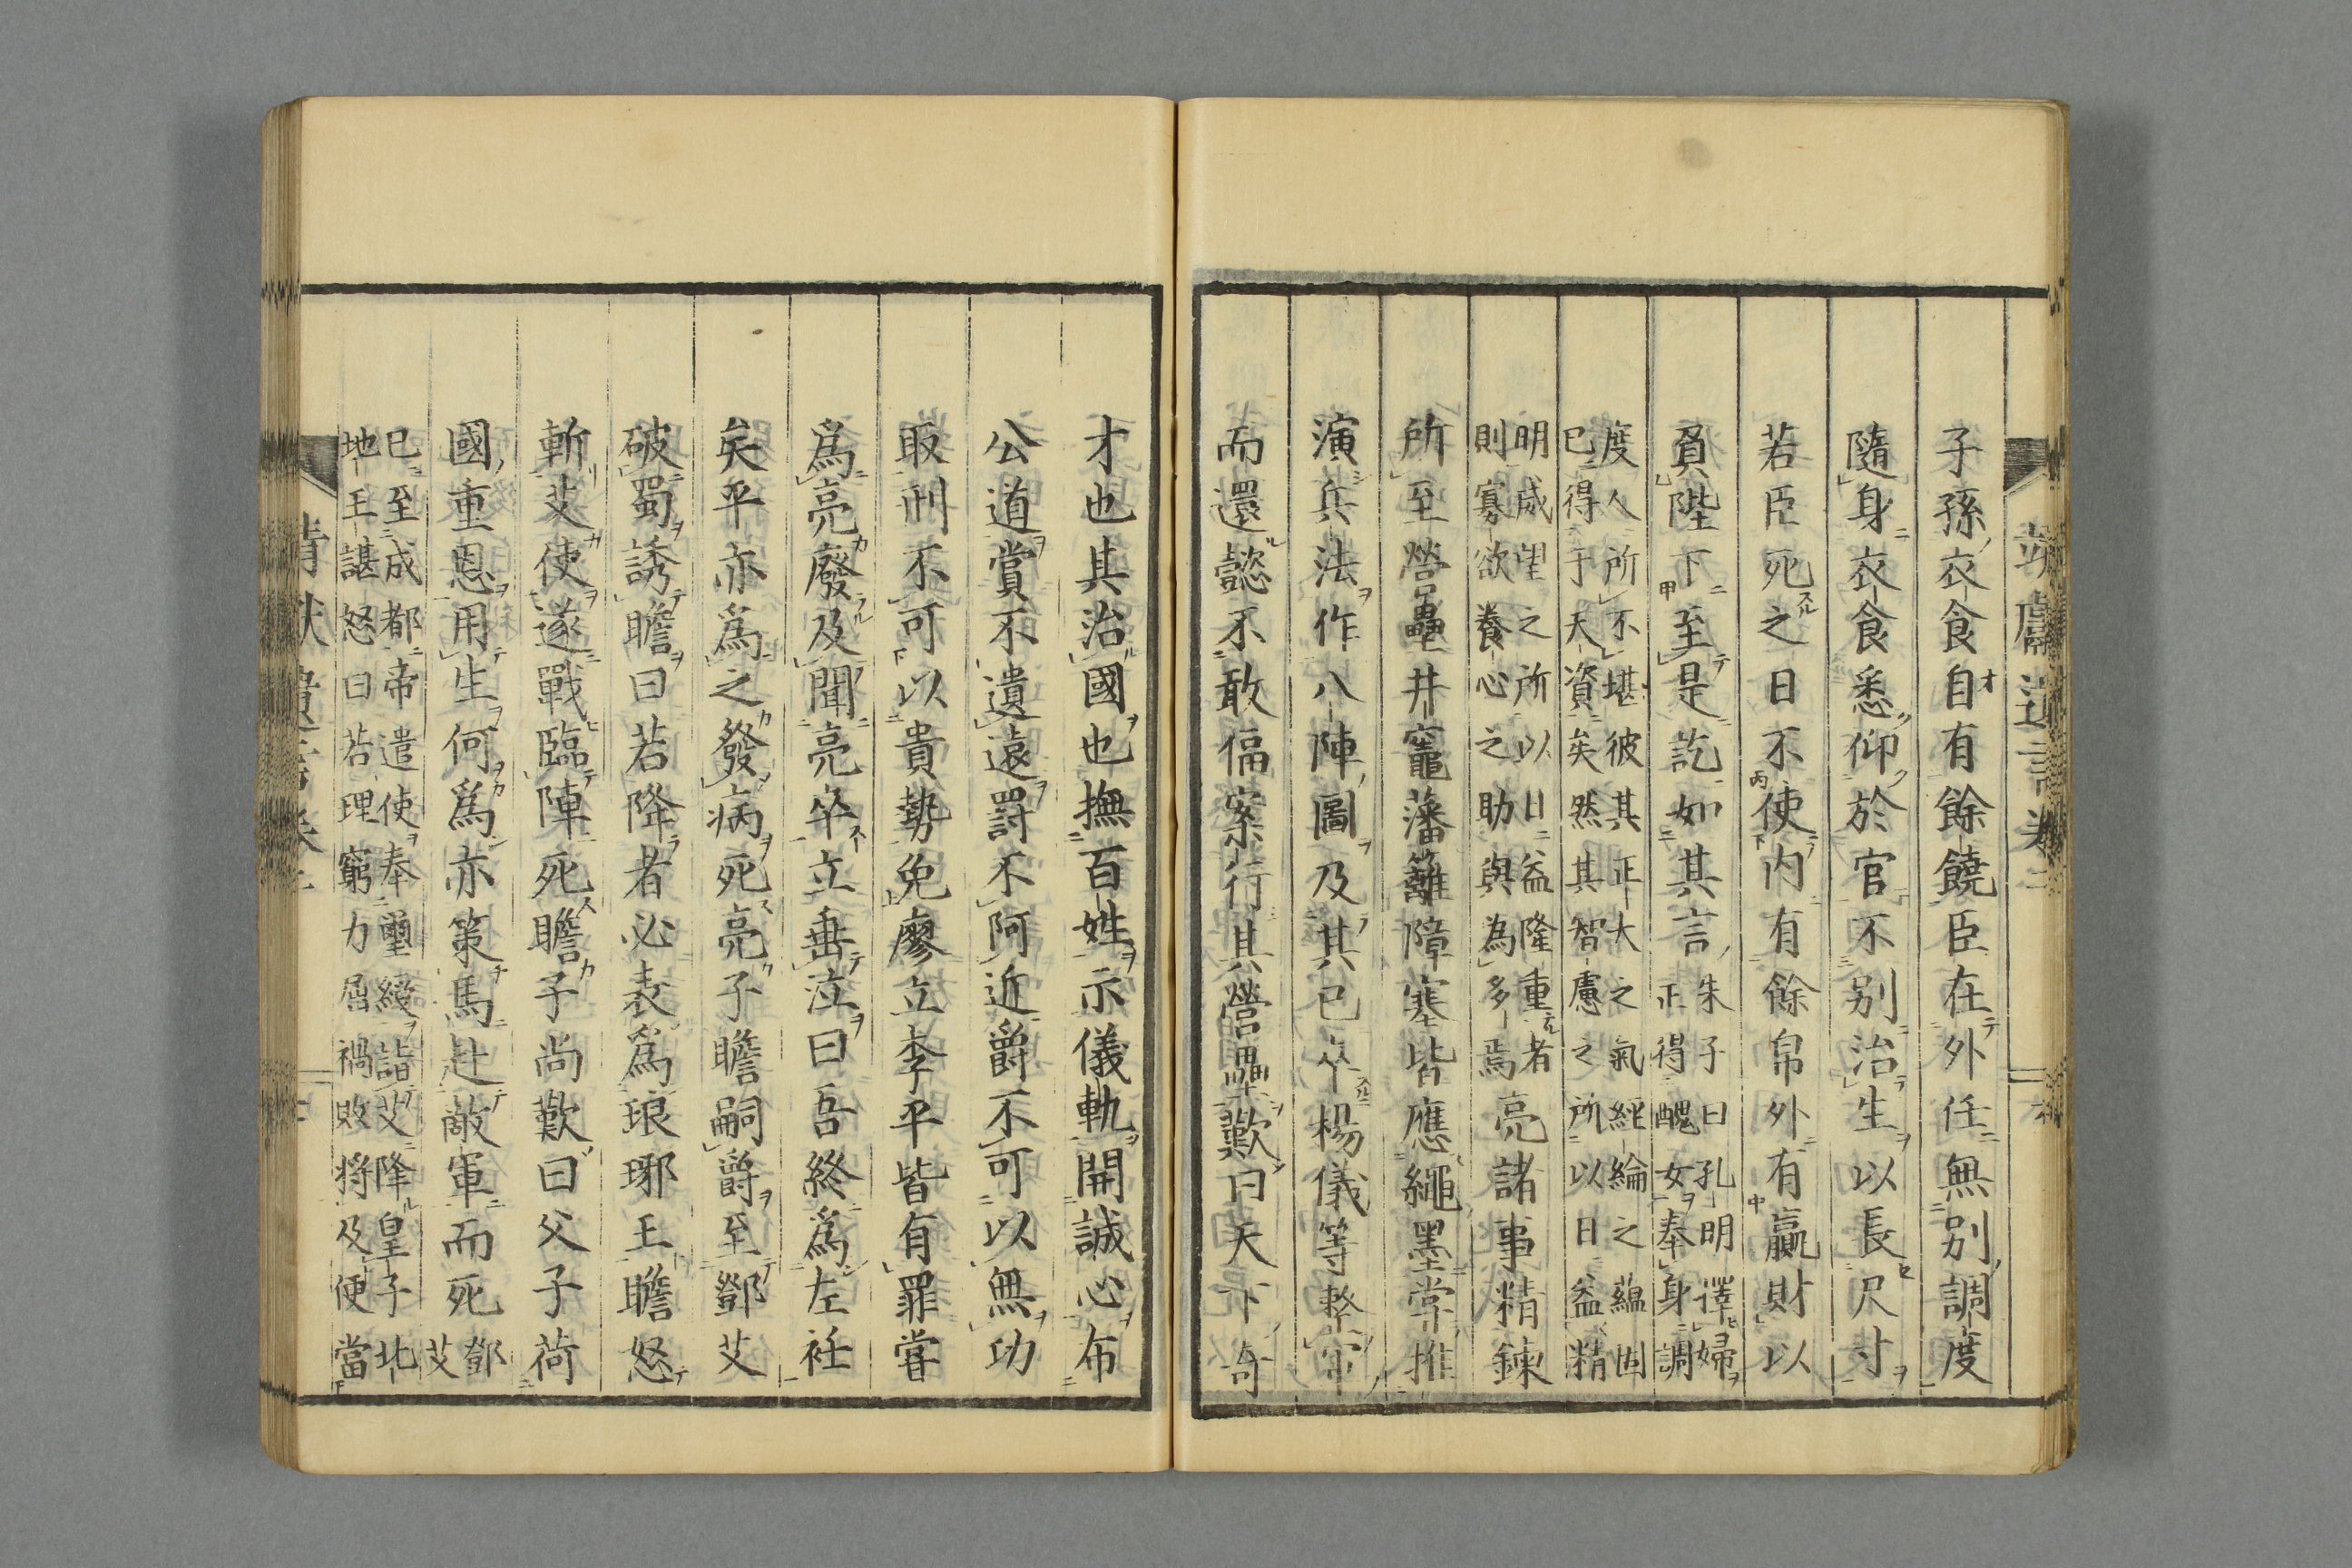 子孫衣食自有餘饒臣在外任無別調度
隨身衣食悉仰於官不別治生以長尺寸
若臣死之日不使内有餘帛外有贏財以
負陛下至是訖如其言朱子曰孔明擇婦
正得醜女奉身調
度人所不堪彼其正大之氣經綸之蘊固
已得于天資矣然其智慮之所以日益精
明威望之所以日益隆重者
則寡欲養心之助與為多焉亮諸事精鍊
所至營壘井竈藩籬障塞皆應繩墨嘗推
演兵法作八陣圖及其已卒楊儀等整
而還懿不敢偪案行其營壘歎曰天下奇
才也其治國也撫百姓示儀軌開誠心布
公道賞不遺遠罰不阿近爵不可以無功
取刑不可以貴勢免廖立李平皆有罪嘗
爲亮廢及聞亮卒立垂泣曰吾終爲左衽
矣平亦爲之發病死亮子瞻嗣爵至鄧艾
破蜀誘瞻曰若降者必表爲琅琊王瞻怒
斬艾使遂戰臨陣死瞻子尚歎曰父子荷
國重恩用生何爲亦策馬赴敵軍而死鄧
艾
已至成都帝遣使奉璽綬詣艾降皇子北
地王諶怒曰若理窮力屈禍敗將及便當